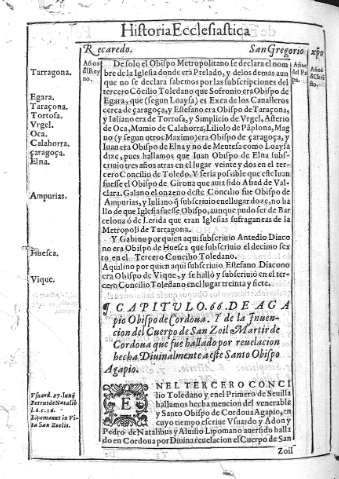 Historia Ecclesiastica
Recaredo. San Gregorio
Años del Reyno.
Tarragona.
Egara.
Taraçona.
Tortosa.
Vrgel.
Oca.
Calahorra.
çaragoça.
Elna.
Ampurias.
Huesca.
Vique.
De solo el Obispo Metropolitano se declara el nom
bre de la Iglesia donde era Prelado, y de los demas aun
que no se declara sabemos por las subscripciones del
tercero Cõcilio Toledano que Sofronio era Obispo de
Egara, que (segun Loaysa) es Exea de los Caualleros
cerca de çaragoça, y Estefano era Obispo de Taraçona,
y Iuliano era de Tortosa, y Simplicio de Vrgel, Asterio
de Oca, Mumio de Calahorra, Liliolo de Páplona, Mag
no (y segun otros Maximo) era Obispo de çaragoça, y
Iuan era Obispo de Elna y no de Mentesa como Loaysa
dize, pues hallamos que Iuan Obispo de Elna subs-
criuio tres años atras en el lugar veinte y dos en el ter-
cero Concilio de Toledo. Y seria posible que este Iuan
fuesse el Obispo de Girona que auia sido Abad de Val-
clara. Galano el onzeno deste Concilio fue Obispo de
Ampurias, y Iulino q̃ subscriuio en el lugar doze, no ha
llo de que Iglesia fuesse Obispo, aunque pudo ser de Bar
celona ò de Lerida que eran Iglesias sufraganeas de la
Metropoli de Tarragona.
Y Gabino por quien aqui subscriuio Antedio Diaco
no era Obispo de Huesca que subscriuio el decimo sex
to en el Tercero Concilio Toledano.
Aquilino por quien aqui subscriuio Estefano Diacono
era Obispo de Vique, y se halló y subscriuio en el ter-
cero Concilio Toledano en el lugar treinta y siete.
¶ CAPITVLO. 66. DE AGA
pio Obispo de Cordoua. Y de la Inuen
cion del Cuerpo de San Zoil Martir de
Cordoua que fue hallado por reuelacion
hecha Diuinalmente a este Santo Obispo
Agapio.
EN EL TERCERO CONCI
lio Toledano y en el Primero de Seuilla
hallamos hecha mencion del venerable
y Santo Obispo de Cordoua Agapio, en
cuyo tiempo escriue Vsuardo y Adon y
Pedro de Natalibus y Aluisio Lipomano auer sido halla
do en Cordoua por Diuina reuelacion el Cuerpo de San
Zoil
Vsuard. 27. Iunij
Lipomanus in Vi
ta San Zoilis.